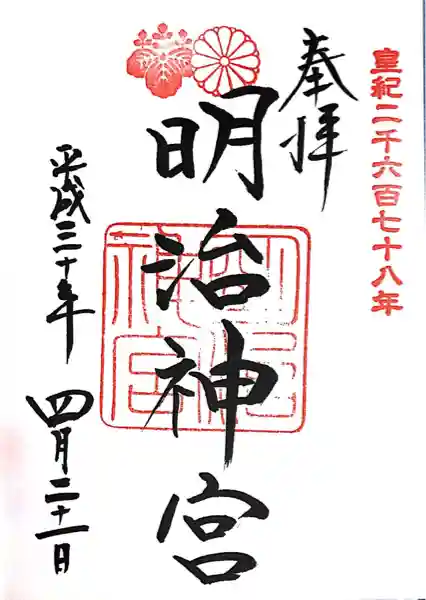 皇紀二千六百七十八年
奉拝
明治神宮
平成三十年
四月二十一日
明治神宮